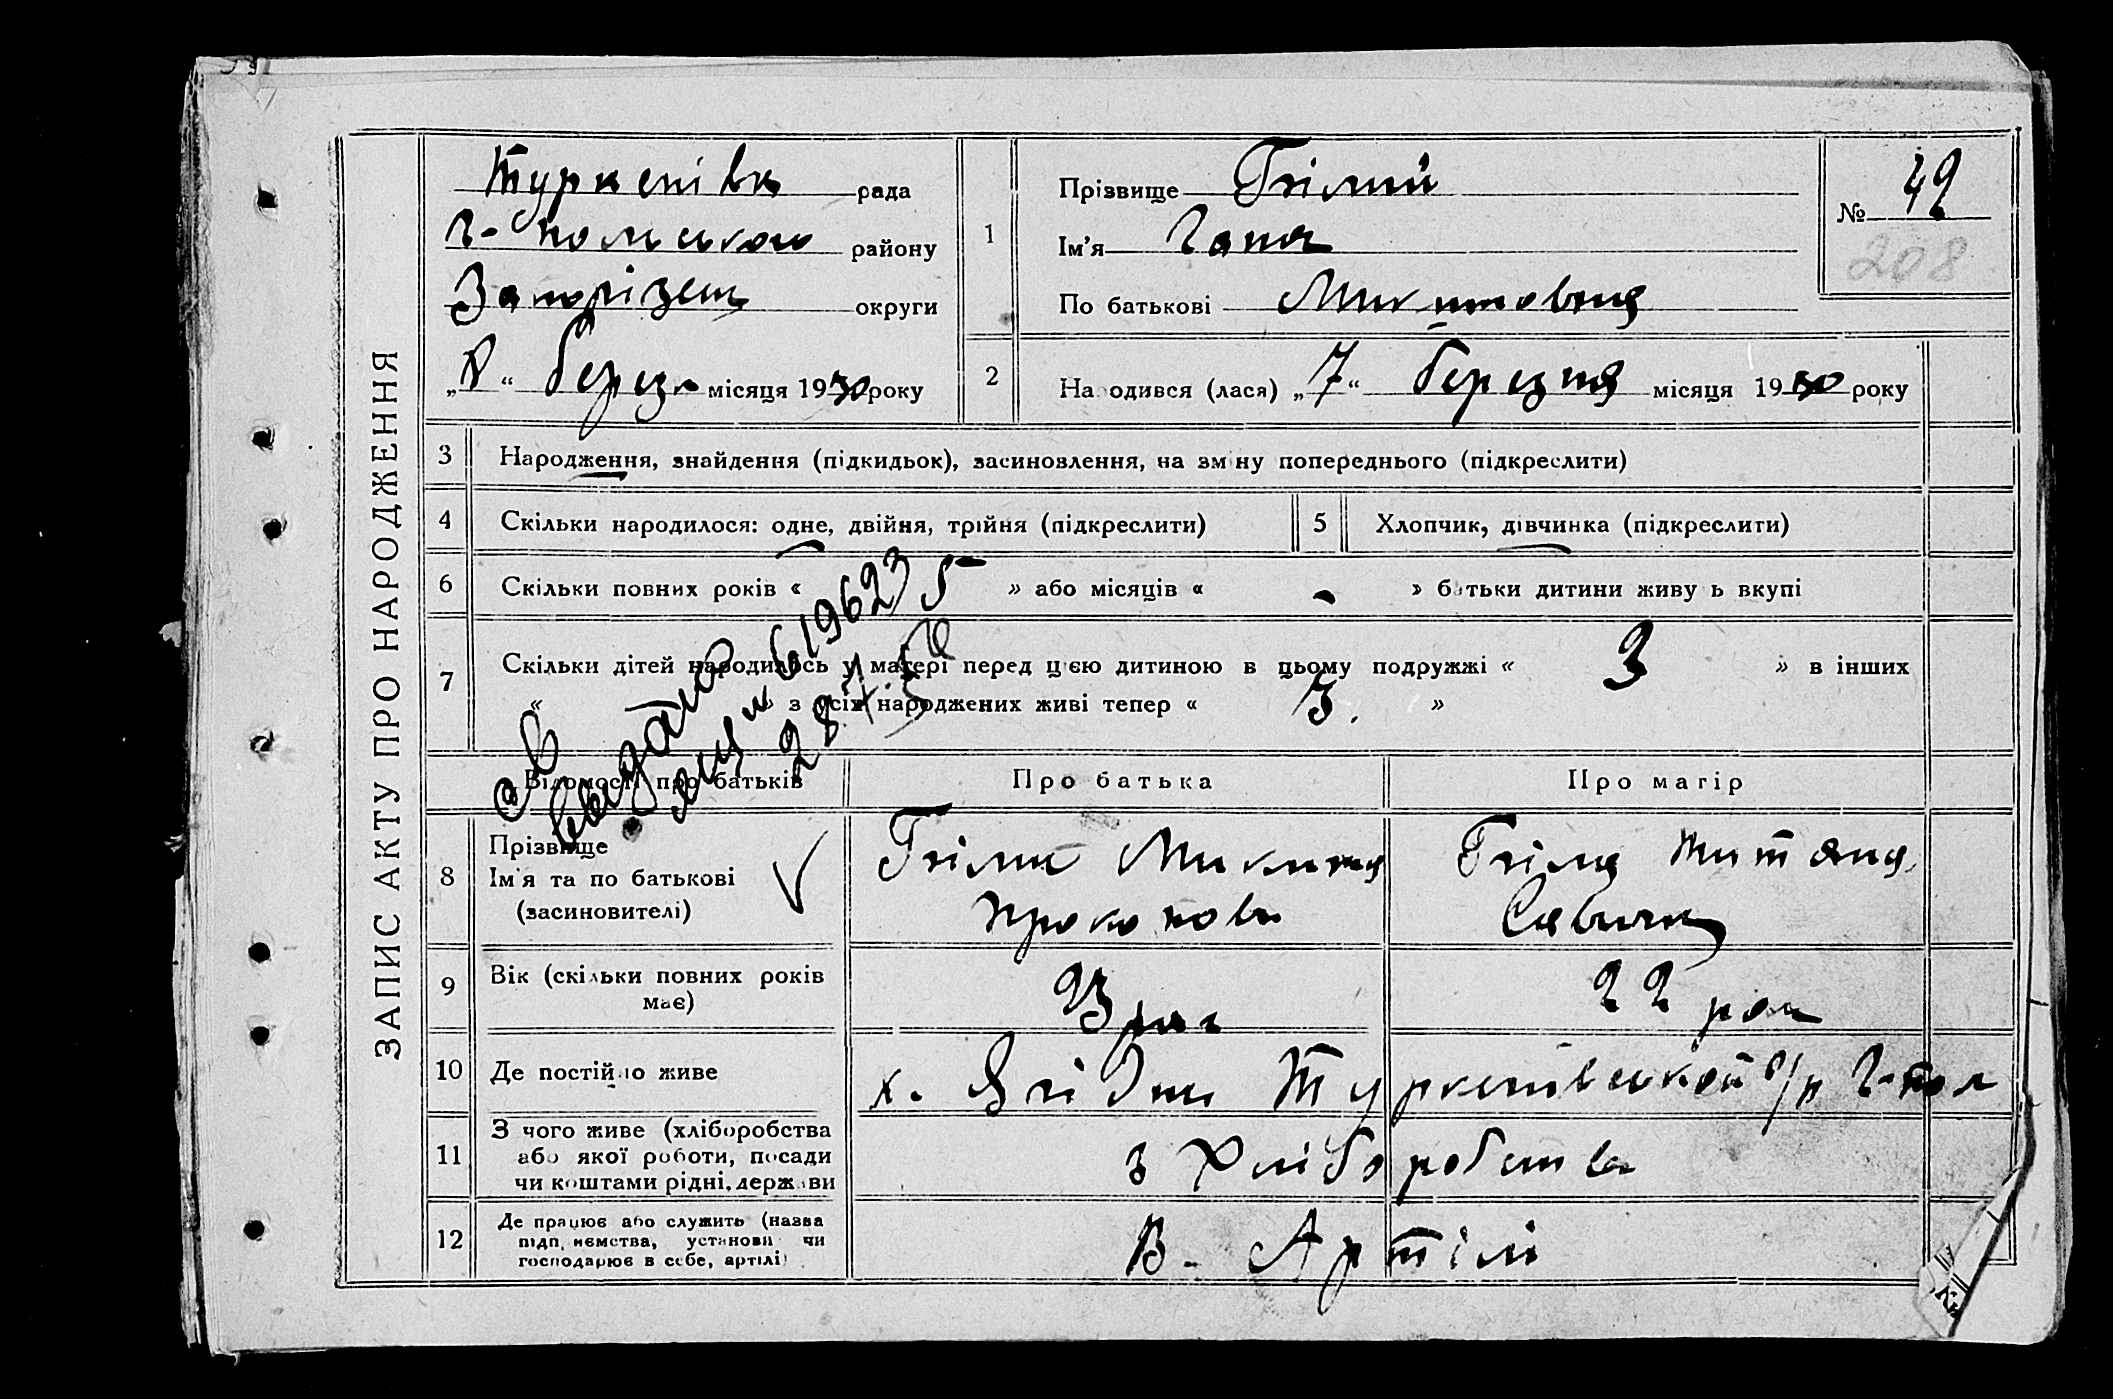 ЗАПИС АКТУ ПРО НАРОДЖЕННЯ
Туркенівк рада
Г-польського району
Запорізець округи
„8“ берез місяця 1930 року
1
Прізвище Гнілий
Ім'я Ганя
По батькові Микитовна
№ 42
208
2
Народився (лася) „7“ березня місяця 1930 року
3 Народження, знайдення (підкидьок), засиновлення, на зміну попереднього (підкреслити)
4 Скільки народилося: одне, двійня, трійня (підкреслити)
5 Хлопчик, дівчинка (підкреслити)
6 Скільки повних років « 5 » або місяців « - » батьки дитини живуть вкупі
7 Скільки дітей народилось у матері перед цією дитиною в цьому подружжі « 3 » в інших
« » з усіх народжених живі тепер « 3. »
св
выдано
619623
28
Відомості про батьків
Про батька
Про матір
8 Прізвище
Ім'я та по батькові
(засиновителі)
Гнілий Микита
Прокопов
Гніла Титяна
Савична
9 Вік (скільки повних років
має)
23 рок
22 рок
10 Де постійно живе
х. Ягідни Туркенівської с/р Г-пол
11 З чого живе (хліборобства
або якої роботи, посади
чи коштами рідні, держави
з Хліборобства
12 Де працює або служить (назва
підприємства, установи чи
господарює в себе, артілі)
В. Артілі